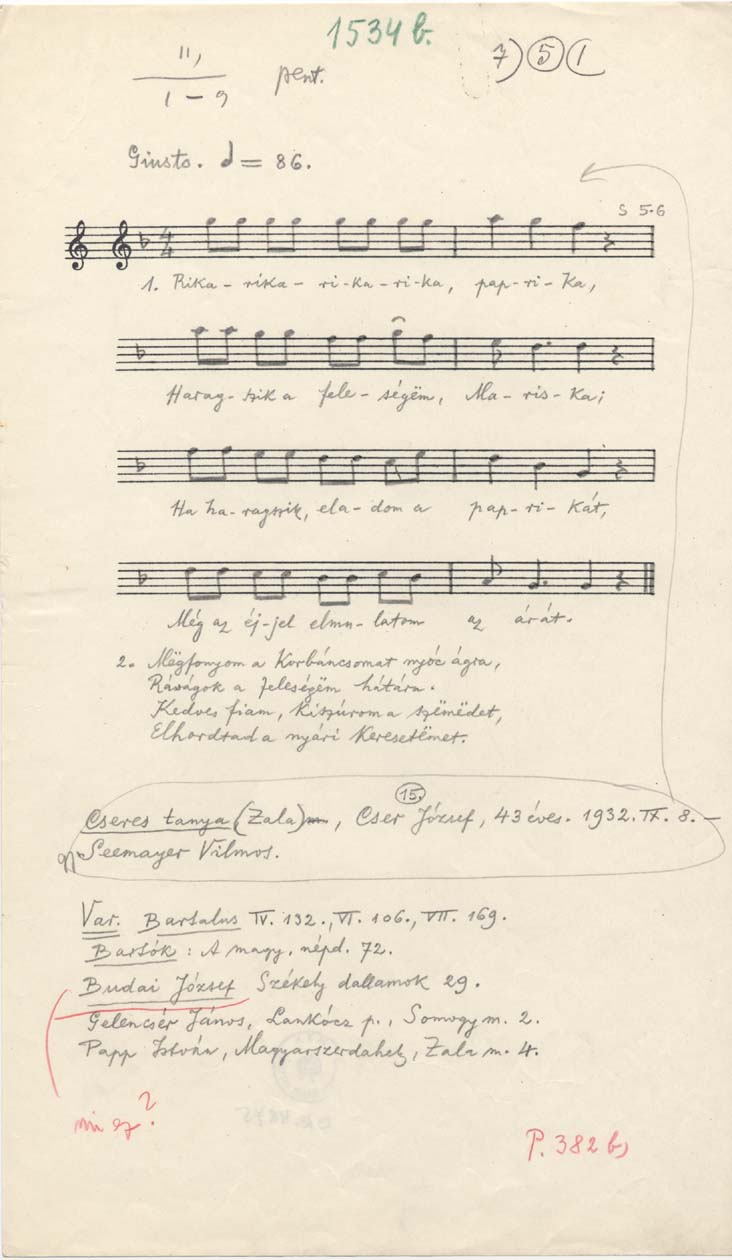 1534 b.
II,
1 – 9
pent.
7) 5 (
Giusto. = 86.
S 5-6
4
4
1. Rika – rika – ri-ka – ri-ka, pap-ri-ka,
Harag-szik a fele-ségëm, Ma-ris-ka;
Ha ha-ragszik, ela-dom a pap-ri-kát,
Még az éj-jel elmu-latom az árát.
2. Mëgfonyom a korbáncsomat nyóc ágra,
Rávágok a feleségëm hátára.
Kedves fiam, kiszúrom a szëmëdet,
Elhordtad a nyári keresetëmet.
15.
Cseres tanya (Zala), Cser József, 43 éves. 1932. IX. 8. –
Seemayer Vilmos.
Var. Bartalus IV. 132., VI. 106., VII. 169.
Bartók: A magy. népd. 72.
Budai József Székely dallamok 29.
Gelencsér János, Lankócz p., Somogy m. 2.
Papp István, Magyarszerdahely, Zala m. 4.
mi ez?
P. 382 b,